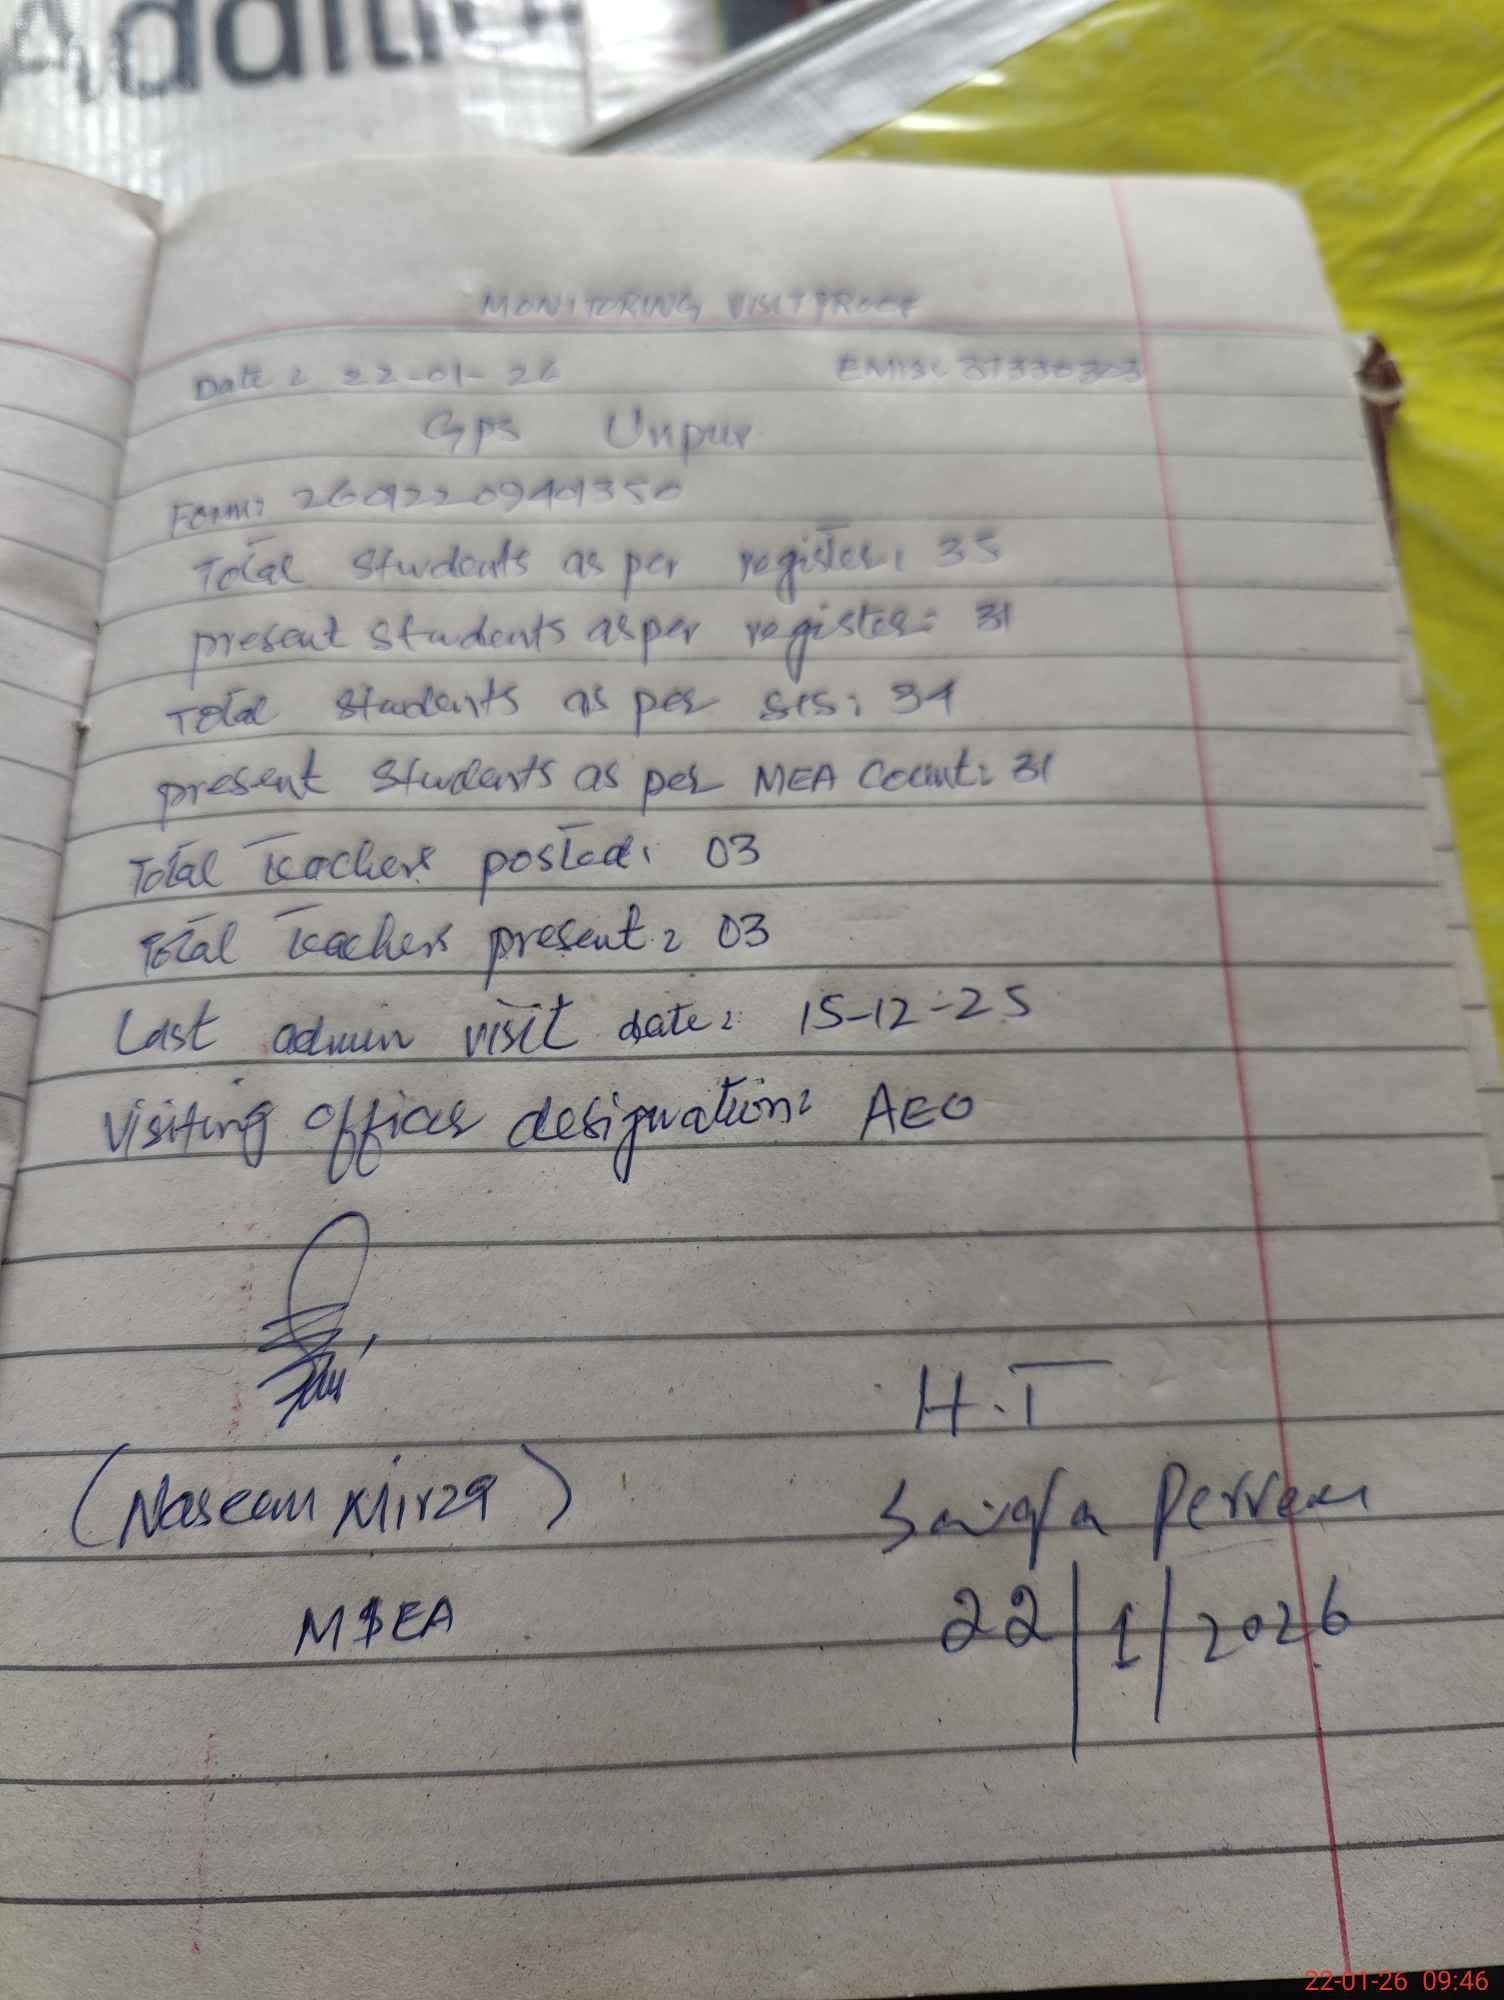 Additi
MONITORING VISIT PROOF
Date: 22-01-26 EMIS: 37330303
Gps Unpur
Form: 26012209401350
Total students as per register: 35
present students as per register: 31
Total students as per SIS: 34
present students as per MEA Count: 31
Total teachers posted: 03
Total teachers present: 03
Last admin visit date: 15-12-25
Visiting officer designation: AEO
H.T
(Naseem Mirza)
Perveen
MEA
22/1/2026
22-01-26 09:46